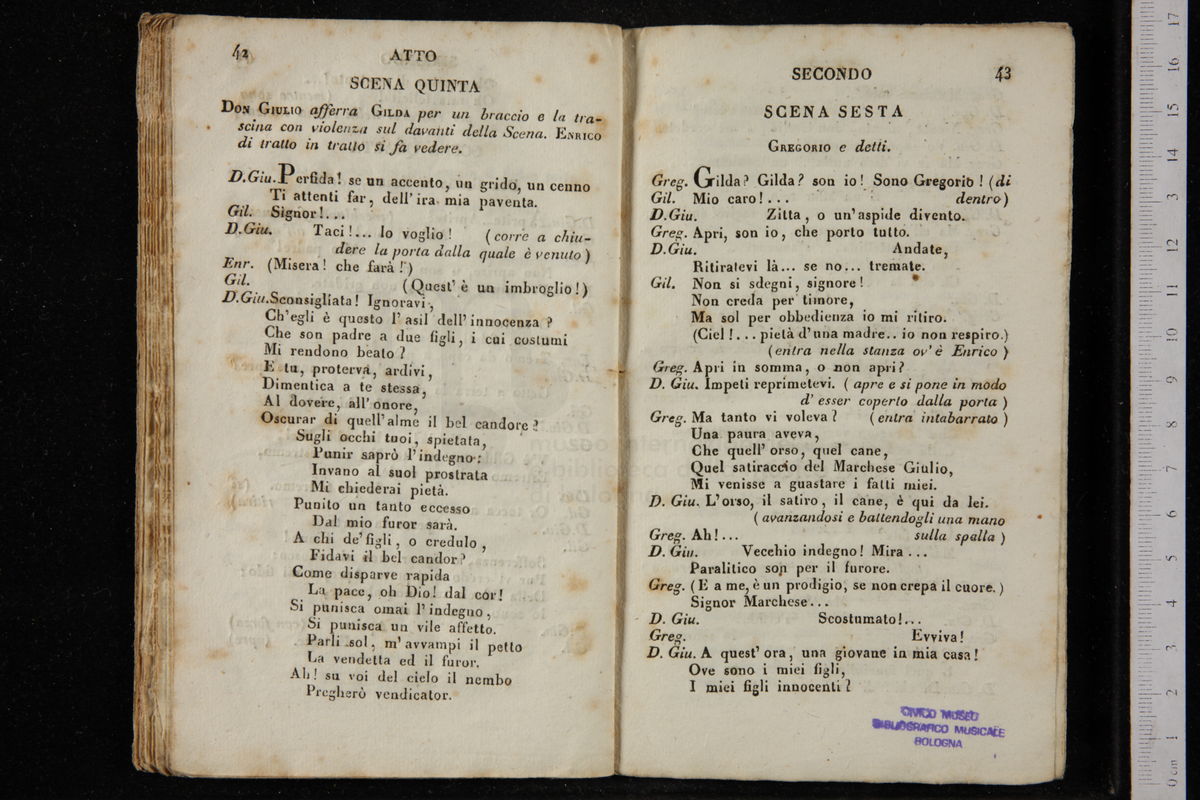 42
ATTO
SCENA QUINTA
DON GIULIO afferra GILDA per un braccio e la tra-
scina con violenza sul davanti della Scena. ENRICO
di tratto in tratto si fà vedere.
D.Giu. Perfida! se un accento, un grido, un cenno
Ti attenti far, dell' ira mia paventa.
Gil. Signor!...
D.Giu. Taci!... lo voglio! (corre a chiu-
dere la porta dalla quale è venuto)
Enr. (Misera! che farà!)
Gil. (Quest' è un imbroglio!)
D.Giu. Sconsigliata! Ignoravi,
Ch'egli è questo l'asil dell'innocenza?
Che son padre a due figli, i cui costumi
Mi rendono beato?
E tu, proterva, ardivi,
Dimentica a te stessa,
Al dovere, all' onore,
Oscurar di quell'alme il bel candore?
Sugli occhi tuoi, spietata,
Punir saprò l'indegno:
Invano al suol prostrata
Mi chiederai pietà.
Punito un tanto eccesso
Dal mio furor sarà.
A chi de' figli, o credulo,
Fidavi il bel candor?
Come disparve rapida
La pace, oh Dio! dal cor!
Si punisca omai l'indegno,
Si punisca un vile affetto.
Parli sol, m'avvampi il petto
La vendetta ed il furor.
Ah! su voi del cielo il nembo
Pregherò vendicator.
SECONDO
43
SCENA SESTA
GREGORIO e detti.
Greg. Gilda? Gilda? son io! Sono Gregorio! (di
Gil. Mio caro!... dentro)
D.Giu. Zitta, o un'aspide divento.
Greg. Apri, son io, che porto tutto.
D.Giu. Andate,
Ritiratevi là... se no... tremate.
Gil. Non si sdegni, signore!
Non creda per timore,
Ma sol per obbedienza io mi ritiro.
(Ciel!... pietà d'una madre.. io non respiro.)
(entra nella stanza ov' è Enrico)
Greg. Apri in somma, o non apri?
D. Giu. Impeti reprimetevi. (apre e si pone in modo
d' esser coperto dalla porta)
Greg. Ma tanto vi voleva? (entra intabarrato)
Una paura aveva,
Che quell' orso, quel cane,
Quel satiraccio del Marchese Giulio,
Mi venisse a guastare i fatti miei.
D. Giu. L'orso, il satiro, il cane, è qui da lei.
(avanzandosi e battendogli una mano
Greg. Ah!... sulla spalla)
D. Giu. Vecchio indegno! Mira...
Paralitico son per il furore.
Greg. (E a me, è un prodigio, se non crepa il cuore.)
Signor Marchese...
D. Giu. Scostumato!...
Greg. Evviva!
D. Giu. A quest' ora, una giovane in mia casa!
Ove sono i miei figli,
I miei figli innocenti?
CIVICO MUSEO
BIBLIOGRAFICO MUSICALE
BOLOGNA
0 cm 1 2 3 4 5 6 7 8 9 10 11 12 13 14 15 16 17